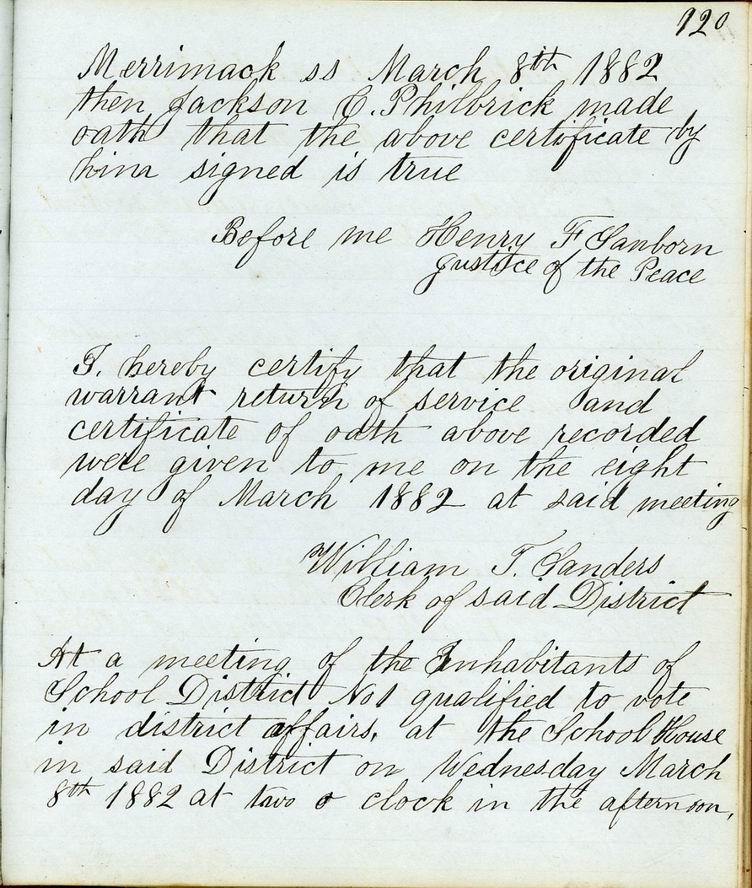 120
Merrimack ss March 8th 1882
then Jackson C. Philbrick made
oath that the above certificate by
him signed is true
Before me Henry F Sanborn
Justice of the Peace
I. hereby certify that the original
warrant return of service and
certificate of oath above recorded
were given to me on the eight
day of March 1882 at said meeting
William T. Sanders
Clerk of said District
At a meeting of the Inhabitants of
School District No 1 qualified to vote
in district affairs, at the School House
in said District on Wednesday March
8th 1882 at two o clock in the afternoon,